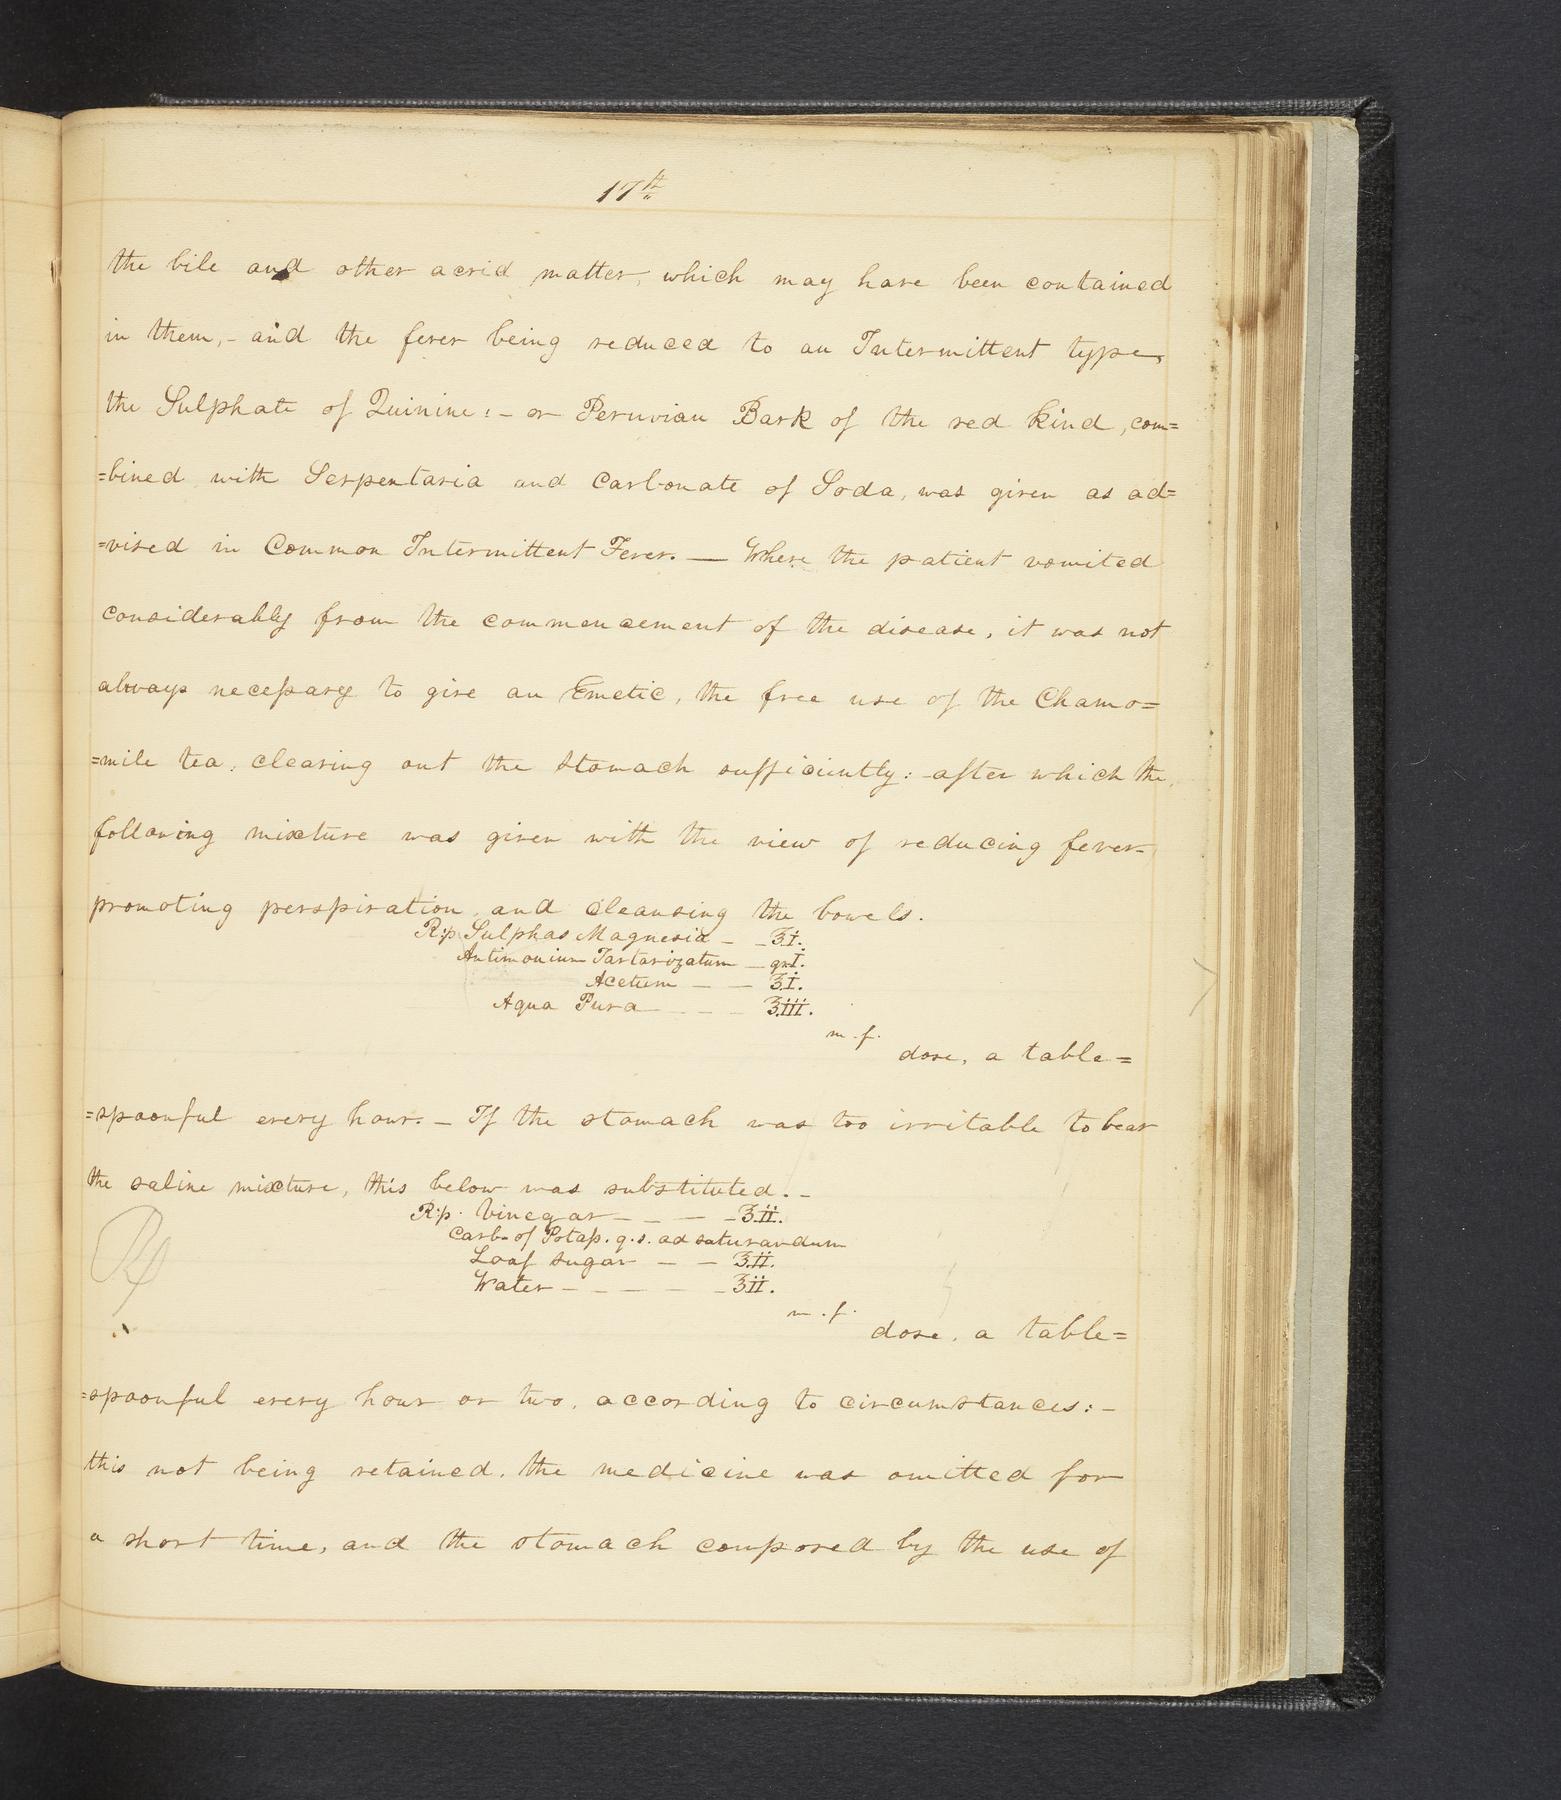 17th
the bile and other acrid matter, which may have been contained
in them,- and the fever being reduced to an Intermittent type,
the Sulphate of Quinine:- or Peruvian Bark of the red kind, com=
=bined with Serpentaria and Carbonate of Soda, was given as ad=
=vised in Common Intermittent Fever. — Where the patient vomited
considerably from the commencement of the disease, it was not
always necessary to give an Emetic, the free use of the Chamo=
=mile tea, clearing out the stomach sufficiently:- after which the
following mixture was given with the view of reducing fever
promoting perspiration, and cleansing the bowels.
R:p. Sulphas Magnesia — — ℥i.
Antimonium Tartarizatum — gr I.
Acetum — — ℥i.
Aqua Pura — — — ℥iii.
m. f.
dose, a table=
=spoonful every hour. — If the stomach was too irritable to bear
the saline mixture, this below was substituted. -
R:p. Vinegar — — — — ℥ii.
Carb- of Potass. q.s. ad saturandum
Loaf sugar — — ʒii.
Water — — — — — ℥ii.
m. f.
Rx
dose, a table=
=spoonful every hour or two, according to circumstances:-
this not being retained, the medicine was omitted for
a short time, and the stomach composed by the use of